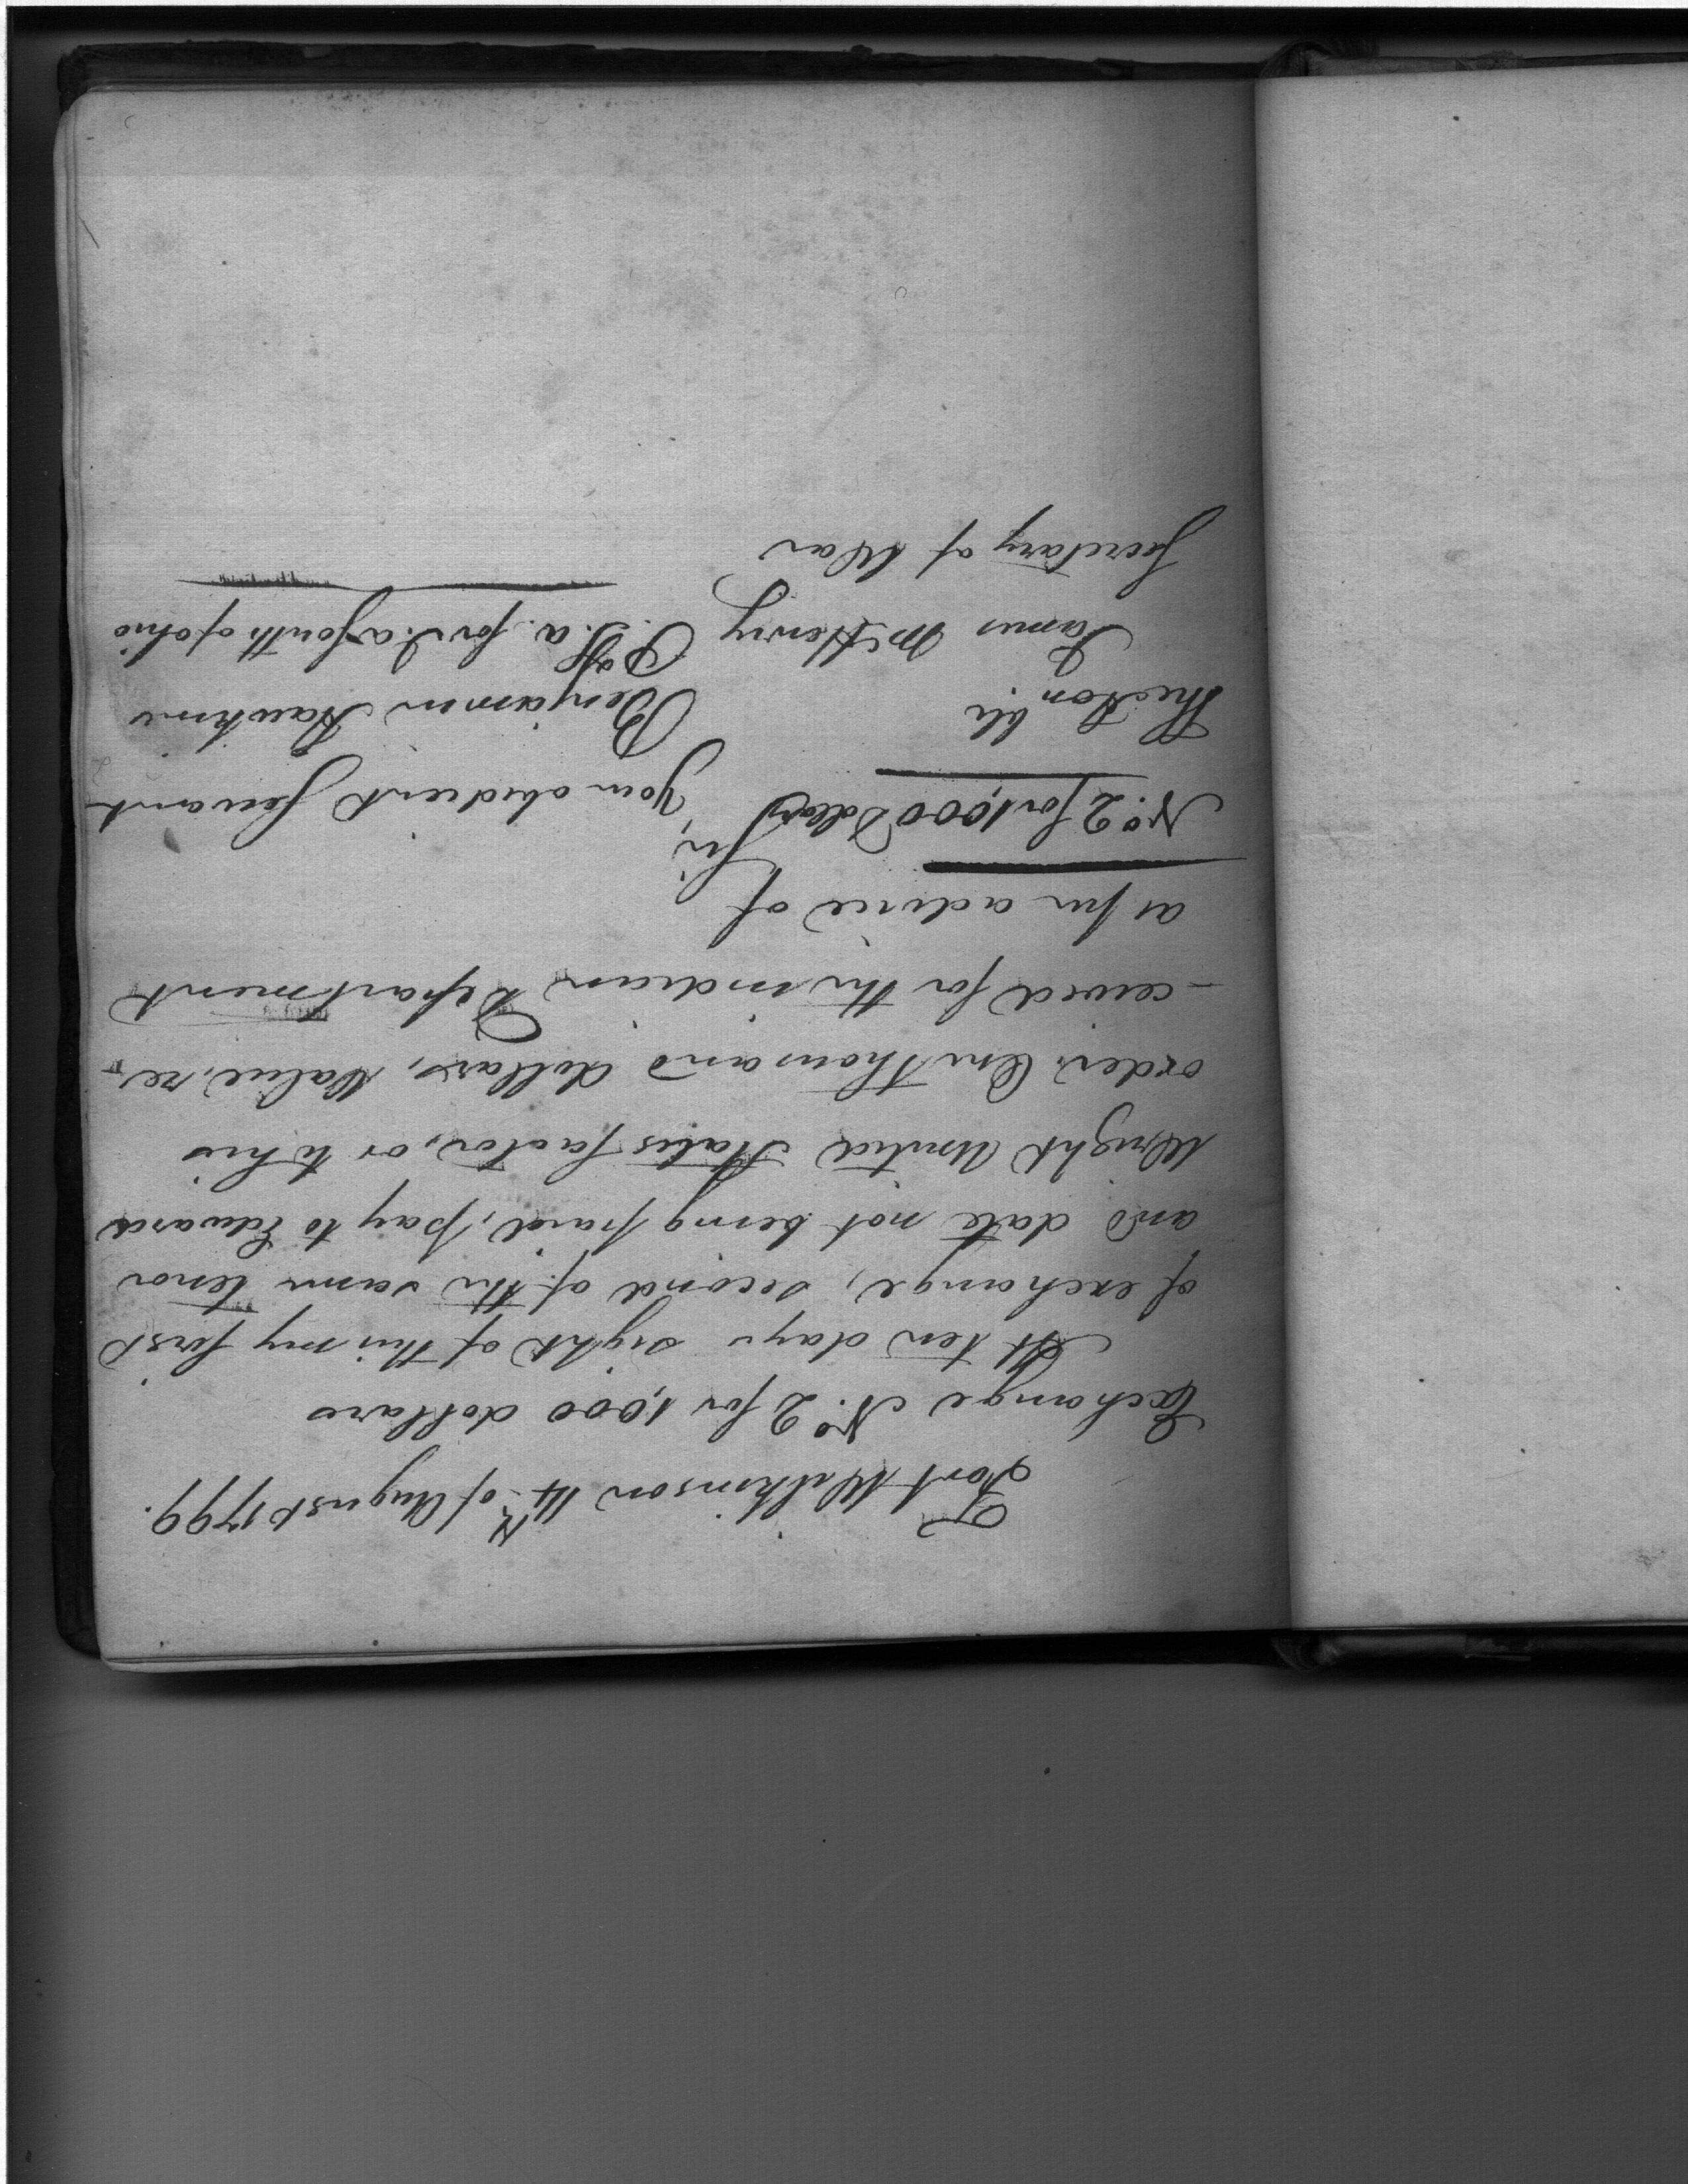 Fort Wilkinson 14th of August 1799.
Exchange No. 2 for 1,000 dollars
At ten days sight of this my first
of exchange, second of the same tenor
and date not being paid, pay to Edward
Wright United States factor, or to his
order One thousand dollars, Value re-
-ceived for the indian Department
as per advice of
Sir,
No. 2 for 1,000 Dollars
Your obedient Servant
The Honble.
Benjamin Hawkins
James McHenry
P. T. a. for I. a South of ohio
Secretary of War